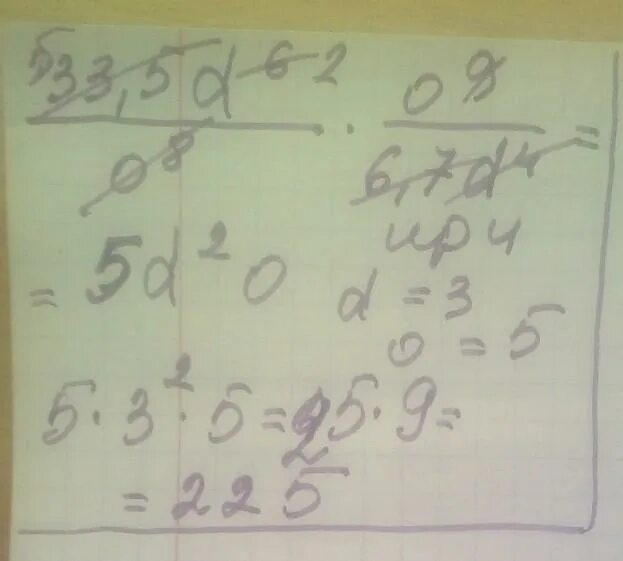 5
33,5d⁶ 2 / o⁸ · o⁹ / 6,7d⁴ =
= 5d²o при
d = 3
o = 5
5·3²·5 = 25·9 =
= 225